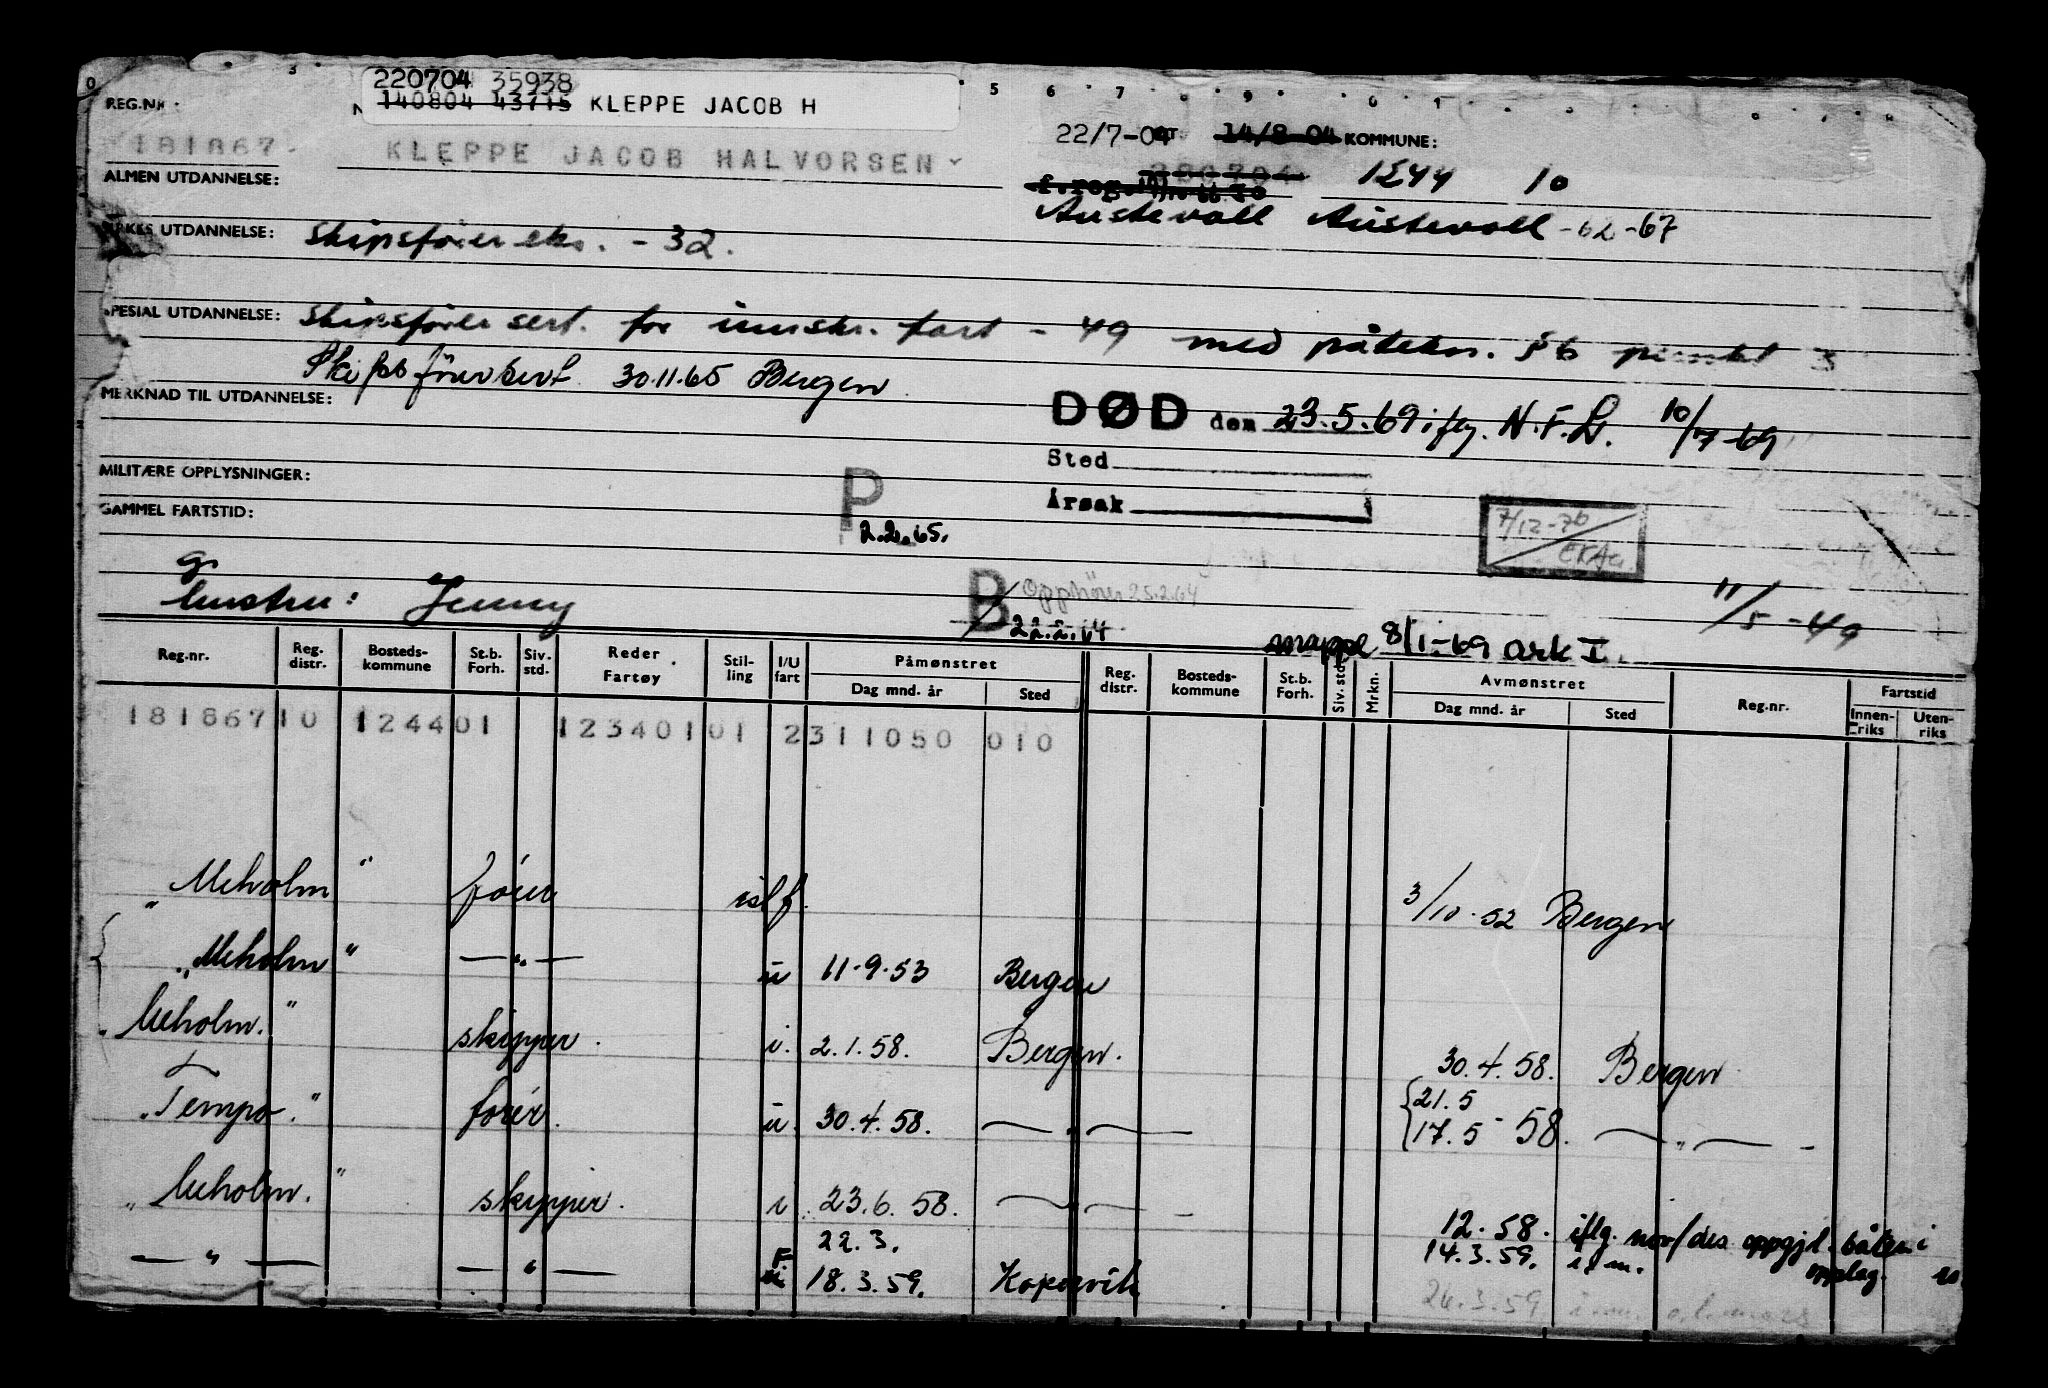 220704 35938
REG.NR. 140804 43715 KLEPPE JACOB H
22/7-04 14/8-04 KOMMUNE:
181867 KLEPPE JACOB HALVORSEN
1244 10
ALMEN UTDANNELSE:
Austevoll Austevoll -62-67
YRKES UTDANNELSE: skipsfører eks. - 32.
SPESIAL UTDANNELSE: skipsfører sert. for innskr. fart - 49 med påtekn. § 6 punkt 3
Skipsførersert. 30.11.65 Bergen
MERKNAD TIL UTDANNELSE:
DØD den 23.5.69 iflg. N.F.L. 10/7-69
Sted
MILITÆRE OPPLYSNINGER:
Årsak
P
2.2.65.
GAMMEL FARTSTID:
7/12-76
g.
hustru: Jenny
B Opphører 25.2.64
22.2.64
11/5-49
mappe 8/1-69 ark I.
Reg.nr. Reg. distr. Bosteds-kommune St.b. Forh. Siv. std. Reder Fartøy Stil-ling I/U fart Påmønstret Dag mnd. år Sted Reg. distr. Bosteds-kommune St.b. Forh. Siv. std. Mrkn. Avmønstret Dag mnd. år Sted Reg.nr. Fartstid Innen-riks Uten-riks
181867 10 1244 01 1234 01 01 2 311050 010
"Meholm" fører isl f. 3/10-52 Bergen
"Meholm" — " — u 11-9-53 Bergen
"Meholm." skipper. i. 2.1.58. Bergen. 30.4.58. Bergen
21.5
"Tempo." fører. u. 30.4.58. — " — 17.5-58. — " —
"Meholm." skipper. i 23.6.58. — " —
12.58. iflg. nov/des oppgj. båten i opplag.
22.3. 14.3.59. i m.
— " — — " — F 18.3.59. Kopervik
24.3.59